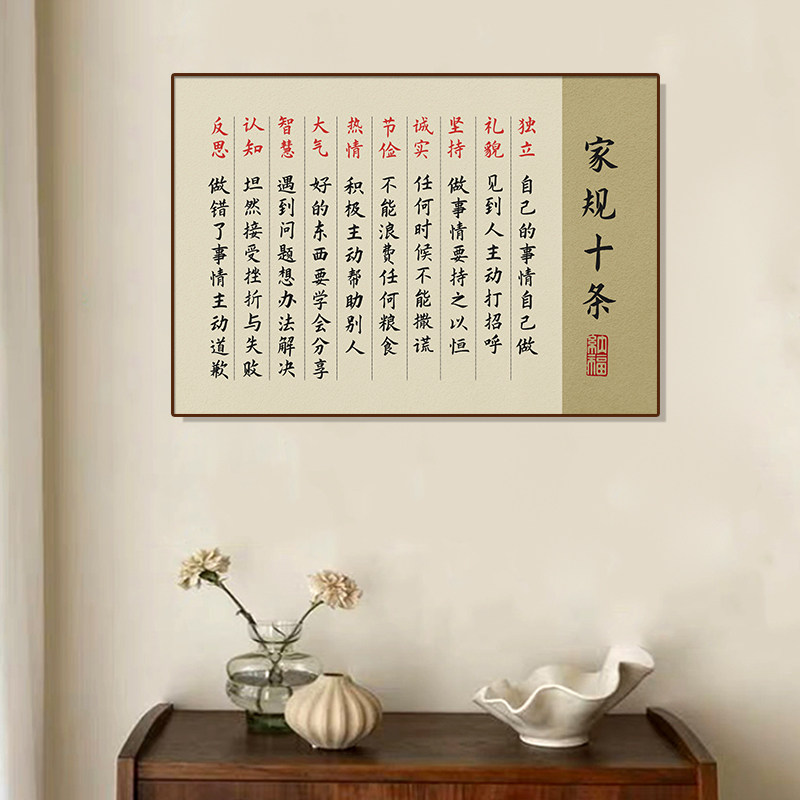 家规十条
納福
独立 自己的事情自己做
礼貌 见到人主动打招呼
坚持 做事情要持之以恒
诚实 任何时候不能撒谎
节俭 不能浪费任何粮食
热情 积极主动帮助别人
大气 好的东西要学会分享
智慧 遇到问题想办法解决
认知 坦然接受挫折与失败
反思 做错了事情主动道歉